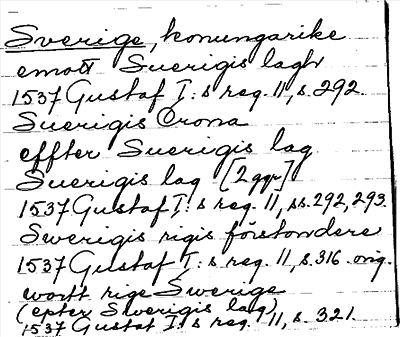 Sverige, konungarike
emott Suerigis lagh
1537 Gustaf I:s reg. 11, s. 292.
Suerigis Crona
effter Suerigis lag
Suerigis lag [2 ggr]
1537 Gustaf I:s reg. 11, ss. 292, 293.
Swerigis rigis förstondere
1537 Gustaf I:s reg. 11, s. 316 orig.
wortt rige Swerige
(epter Swerigis lag)
1537 Gustaf I:s reg. 11, s. 321.